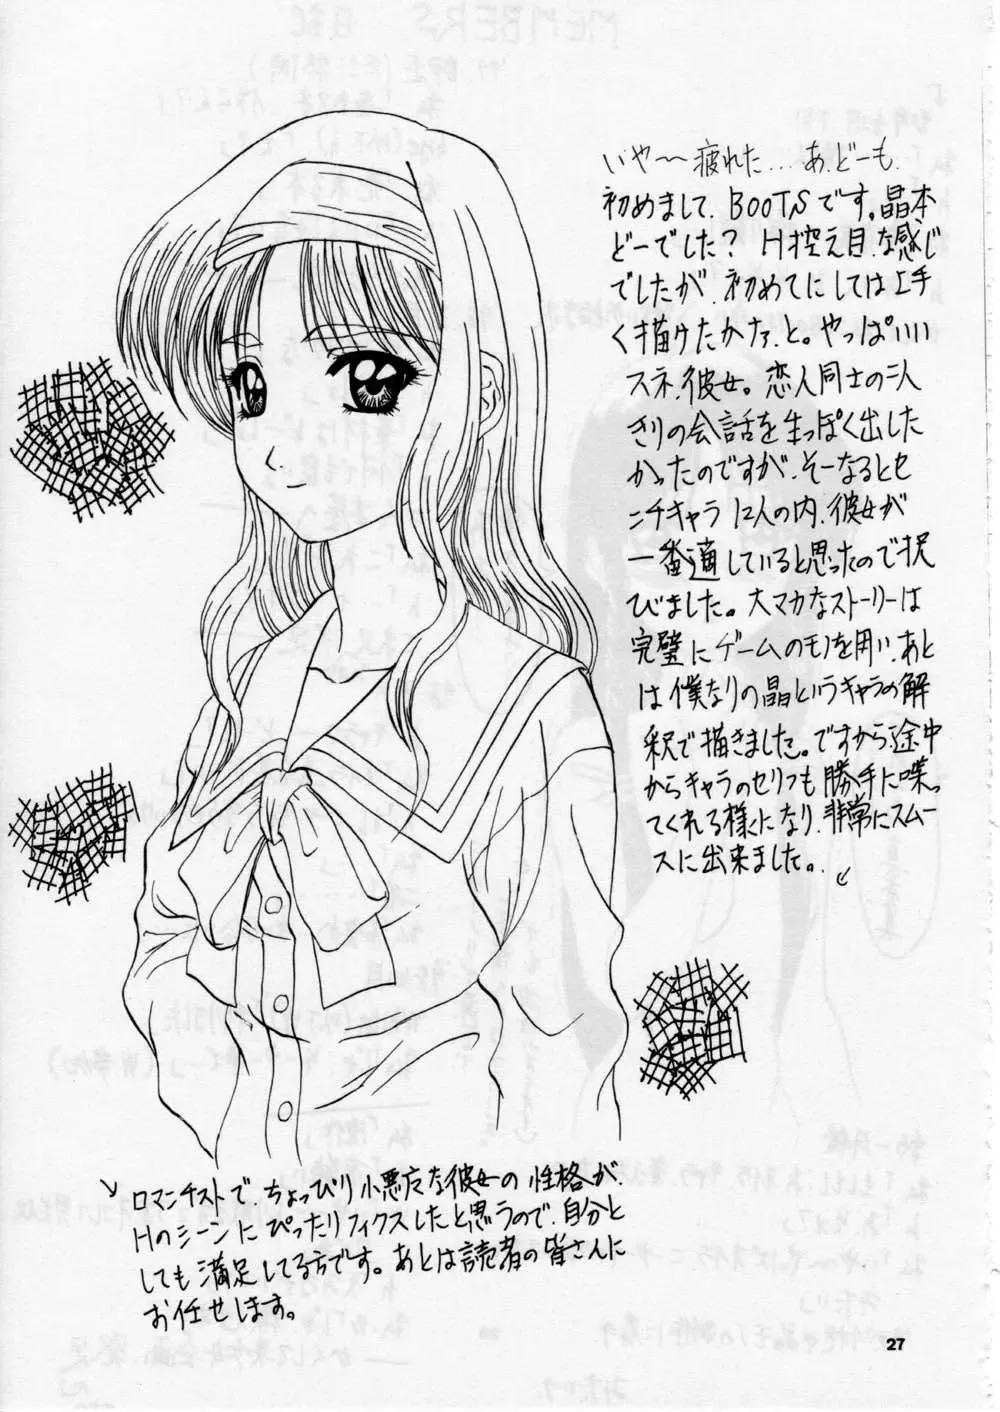 いや〜疲れた...あ、どーも、
初めまして、BOOTSです。晶本
どーでした? H控え目な感じ
でしたが、初めてにしては上手
く描けたかなァ、と。やっぱいい
スネ、彼女。恋人同士の二人
きりの会話を生っぽく出した
かったのですが、そーなるとセ
ンチキャラ12人の内、彼女が
一番適していると思ったので択
びました。大マカなストーリーは
完璧にゲームのモノを用い、あと
は僕なりの晶というキャラの解
釈で描きました。ですから途中
からキャラのセリフも勝手に喋っ
てくれる様になり、非常にスムー
スに出来ました。↙
↘ロマンチストで、ちょっぴり小悪魔な彼女の性格が、
Hのシーンにぴったりフィクスしたと思うので、自分と
しても満足してる方です。あとは読者の皆さんに
お任せします。
27